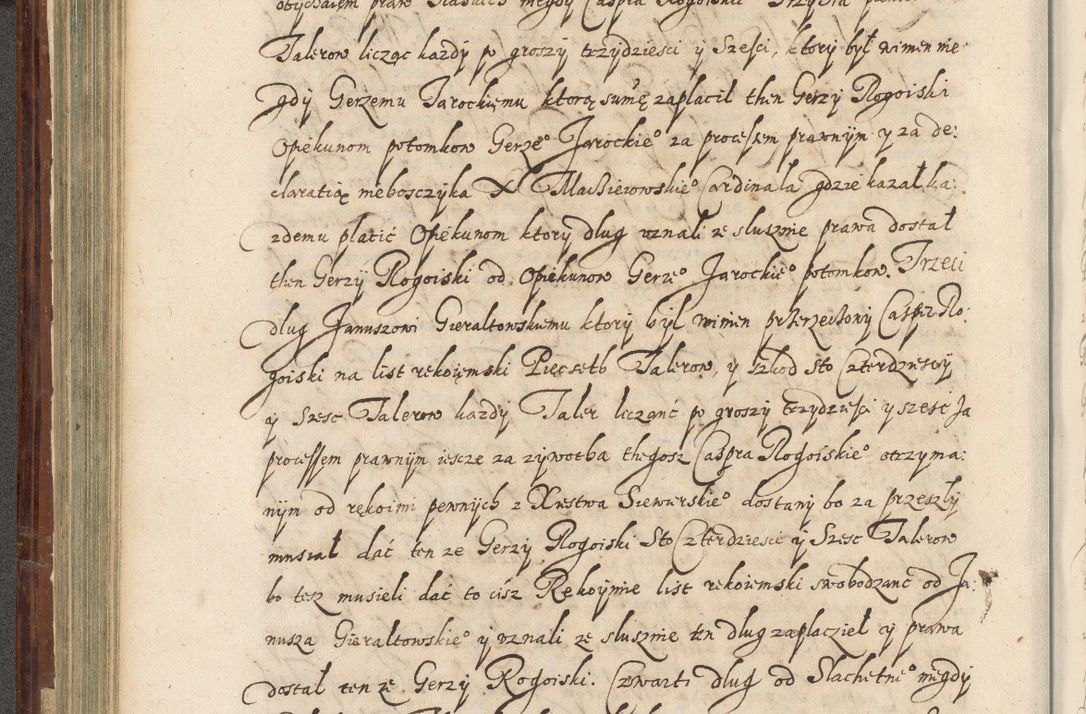 obyczaiem praw
Talerow licząc kazdy po groszy trzydziesci y Szesci, ktory był winien nie
gdy Gerzemu Jarockiemu ktorę sumę zapłacil then Gerzy Rogoiski
Opiekunom potomkow Gerze° Jarockie° za processem prawnym y za de:
claratią niebosczyka X Maciieiowskie° Cardinala gdzie kazał ka:
zdemu płacić Opiekunom ktory dlug uznali ze slusznie prawa dostał
then Gerzy Rogoiski od Opiekunow Gerze° Jarockie° potomkow. Trzeci
dlug Januszowi Gieraltowskiemu ktory był winien przerzeczony Caspr Ro:
goiski na list rekoięmski Pięcsetb Talerow, y szkod sto Czterdziesci
y Szesc Talerow kazdy Taler licząnc po groszy trzydziesci y szesc Ja
processem prawnym iescze za zywotha thegosz Caspra Rogoiskie° otrzyma:
nym od rękoimi pewnych z Xięstwa Siewierskie° dostany bo za przeszły
musiał dać ten ze Gerzy Rogoiski Sto Czterdziesci y Szesc Talerow
bo tesz musieli dać to cisz Rękoymie list rekoiemski swobodzanc od Ja:
nusza Gieraltowskie° y uznali ze slusznie ten dlug zaplacziel y prawa
dostal ten ze Gerzy Rogoiski. Czwarti dlug od Slachetne° niegdy